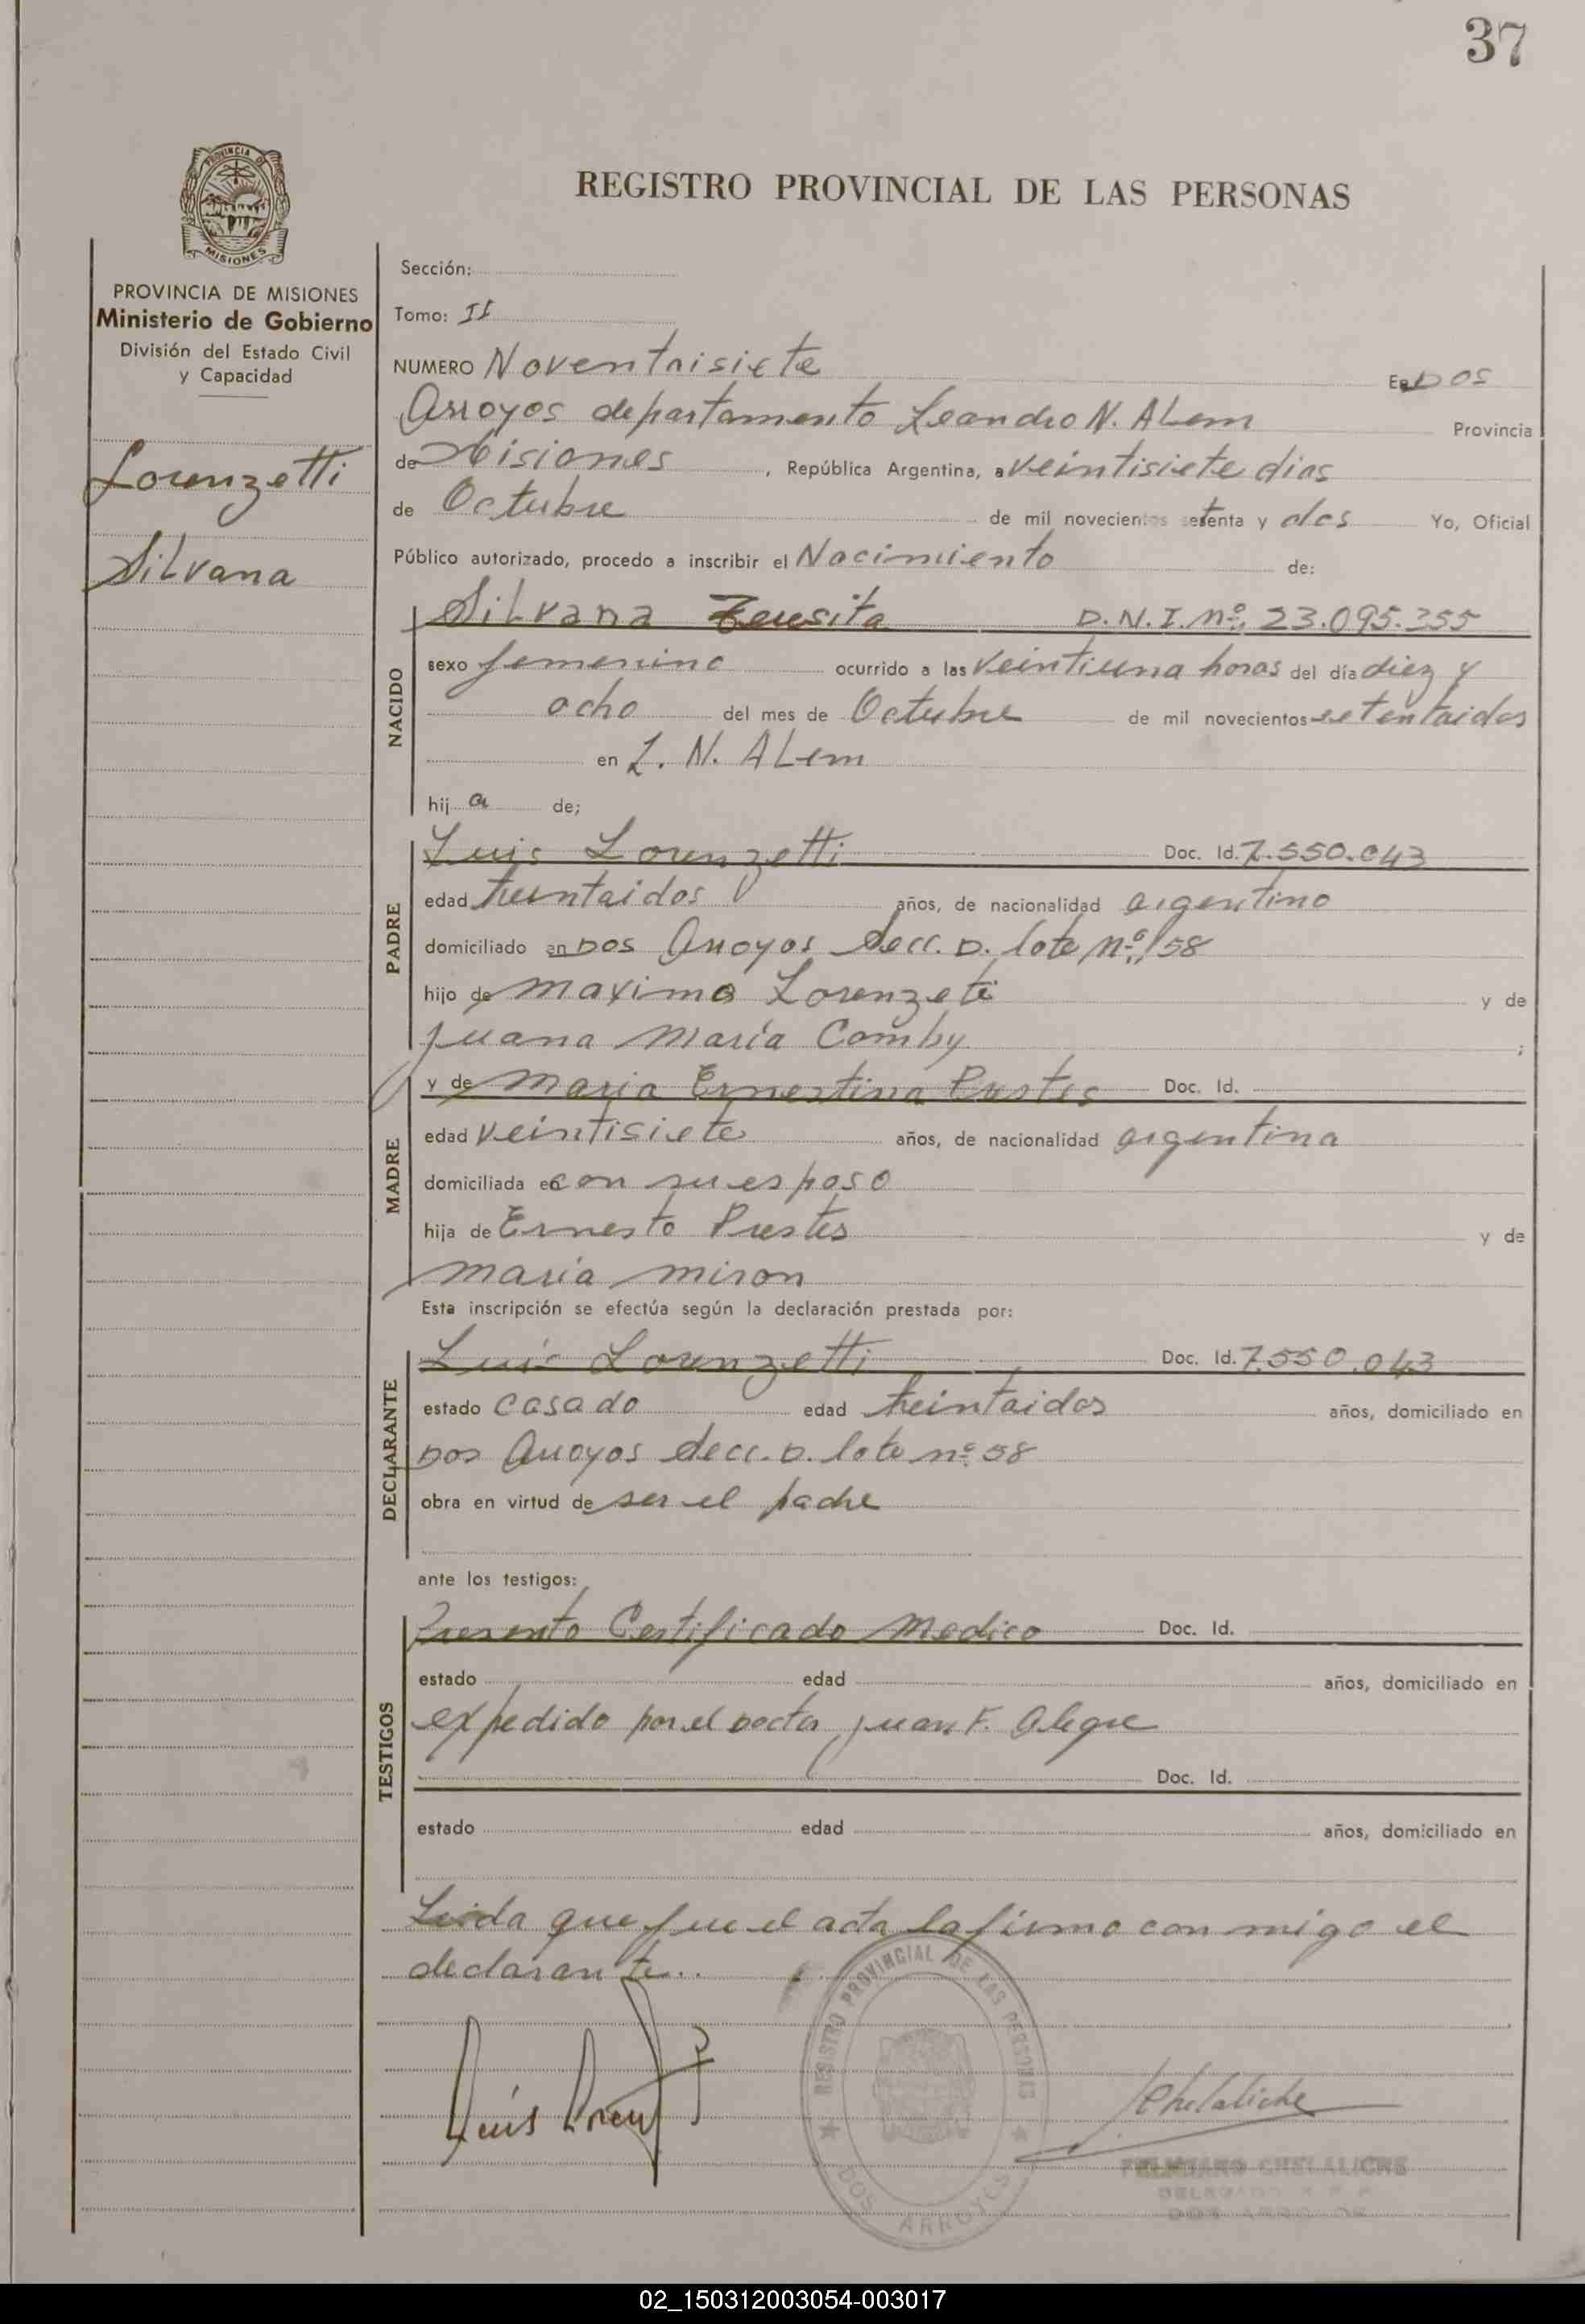 37
PROVINCIA DE
MISIONES
REGISTRO PROVINCIAL DE LAS PERSONAS
PROVINCIA DE MISIONES
Ministerio de Gobierno
División del Estado Civil
y Capacidad
Lorenzetti
Silvana
Sección:
Tomo: II
NUMERO Noventaisiete En Dos
Arroyos departamento Leandro N. ALem Provincia
de Misiones, República Argentina, a veintisiete dias
de Octubre de mil novecientos setenta y dos Yo, Oficial
Público autorizado, procedo a inscribir el Nacimiento de:
NACIDO
Silvana Teresita D.N.I. nº. 23.095.355
sexo femenino ocurrido a las veintiuna horas del día diez y
ocho del mes de Octubre de mil novecientos setentaidos
en L. N. ALem
hij a de;
PADRE
Luis Lorenzetti Doc. Id. 7.550.043
edad treintaidos años, de nacionalidad argentino
domiciliado en Dos Arroyos Secc. D. lote nº. 58
hijo de Maximo Lorenzeti y de
Juana María Comby ;
MADRE
y de Maria Ernestina Prestes Doc. Id.
edad veintisiete años, de nacionalidad argentina
domiciliada en con su esposo
hija de Ernesto Prestes y de
maria miron
Esta inscripción se efectúa según la declaración prestada por:
DECLARANTE
Luis Lorenzetti Doc. Id. 7.550.043
estado casado edad treintaidos años, domiciliado en
Dos Arroyos Secc. D. lote nº. 58
obra en virtud de ser el padre
ante los testigos:
TESTIGOS
Presento Certificado Medico Doc. Id.
estado edad años, domiciliado en
expedido por el Doctor Juan F. Alegre
Doc. Id.
estado edad años, domiciliado en
Leida que fue el acta la firma con migo el
declarante..
REGISTRO PROVINCIAL DE LAS PERSONAS
DOS ARROYOS
Luís
FELICIANO CHELALICHE
DELEGADO R. P. P.
DOS ARROYOS
02_150312003054-003017